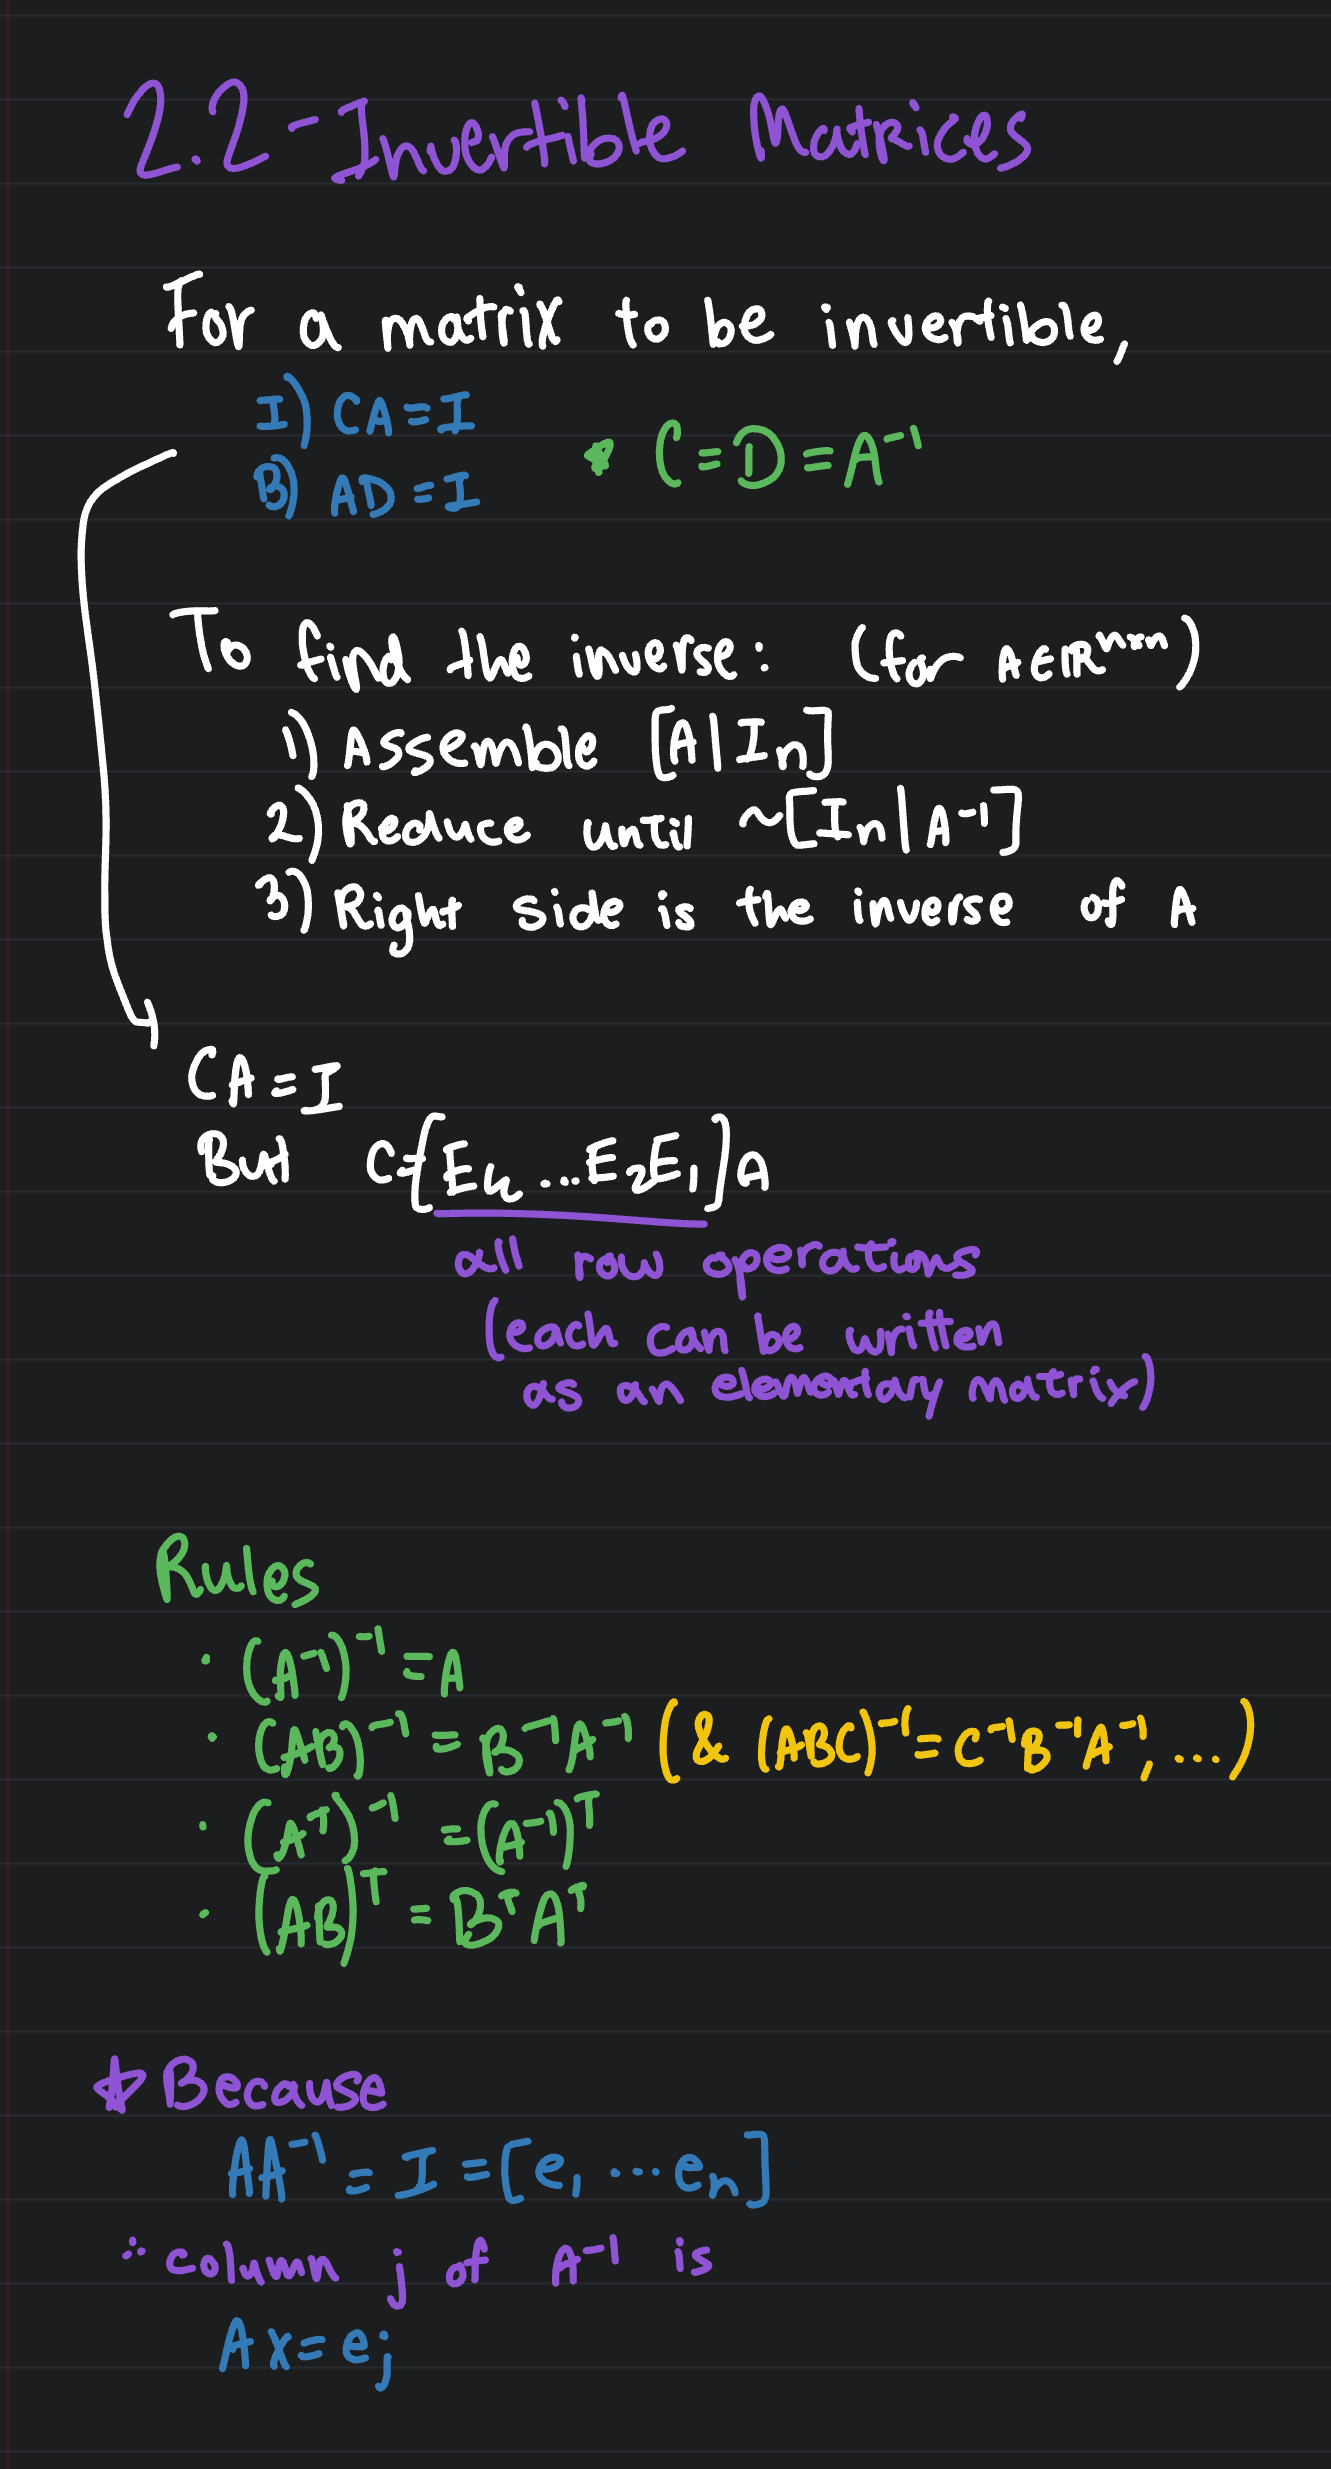 2.2-Invertible Matrices
For a matrix to be invertible,
I) CA=I
* C=D=A⁻¹
B) AD=I
To find the inverse: (for A∈ℝⁿˣⁿ)
1) Assemble [A|In]
2) Reduce until ~[In|A⁻¹]
3) Right side is the inverse of A
CA=I
But C=[Ek...E₂E₁]A
all row operations
(each can be written
as an elementary matrix)
Rules
· (A⁻¹)⁻¹=A
· (AB)⁻¹=B⁻¹A⁻¹ (& (ABC)⁻¹=C⁻¹B⁻¹A⁻¹, ...)
· (Aᵀ)⁻¹=(A⁻¹)ᵀ
· (AB)ᵀ=BᵀAᵀ
☆ Because
AA⁻¹=I=[e₁ ...en]
∴ column j of A⁻¹ is
Ax=ej